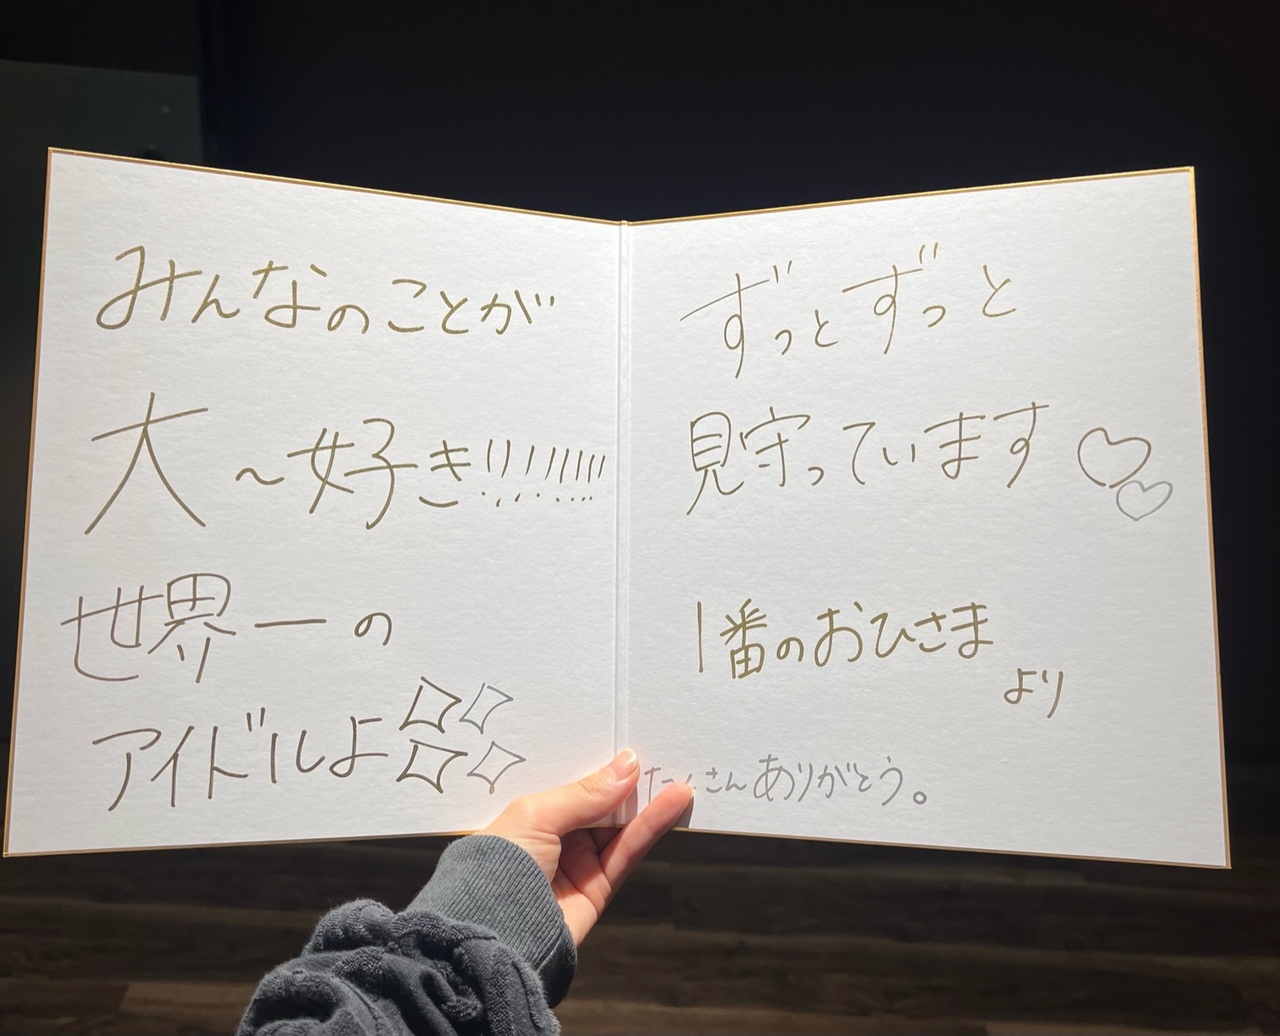 みんなのことが
大〜好き!!!!!!!!!
世界一の
アイドルよ
ずっとずっと
見守っています♡♡
1番のおひさま
より
たくさんありがとう。